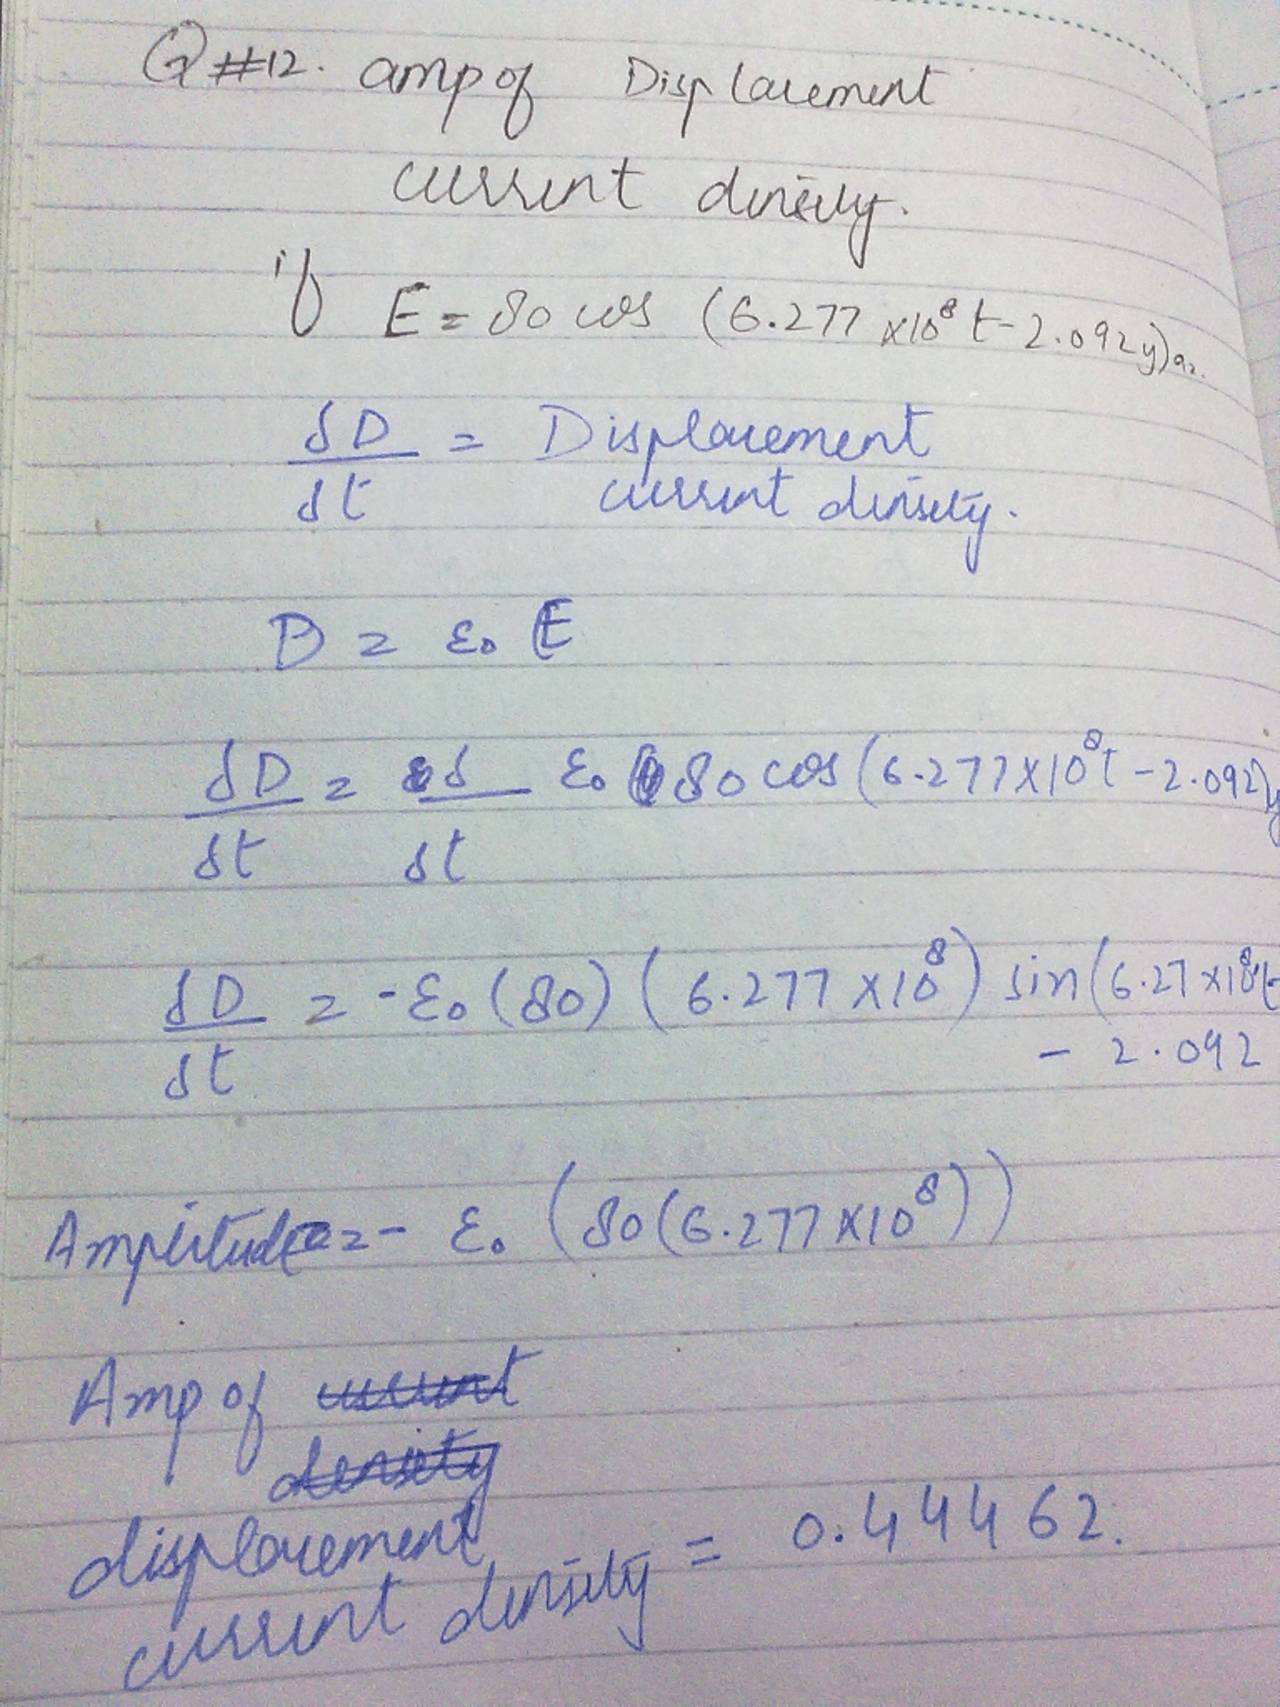 Q#12. amp of Displacement
current density.
if E = 80 cos (6.277 x10⁸ t - 2.092y)az.
δD/δt = Displacement
current density.
D = ε₀ E
δD/δt = δ/δt ε₀ 80 cos (6.277x10⁸t - 2.092y
δD/δt = -ε₀ (80) (6.277 x10⁸) sin(6.27 x10⁸t
- 2.092
Amplitude = - ε₀ (80(6.277x10⁸))
Amp of current
density
displacement
current density = 0.44462.